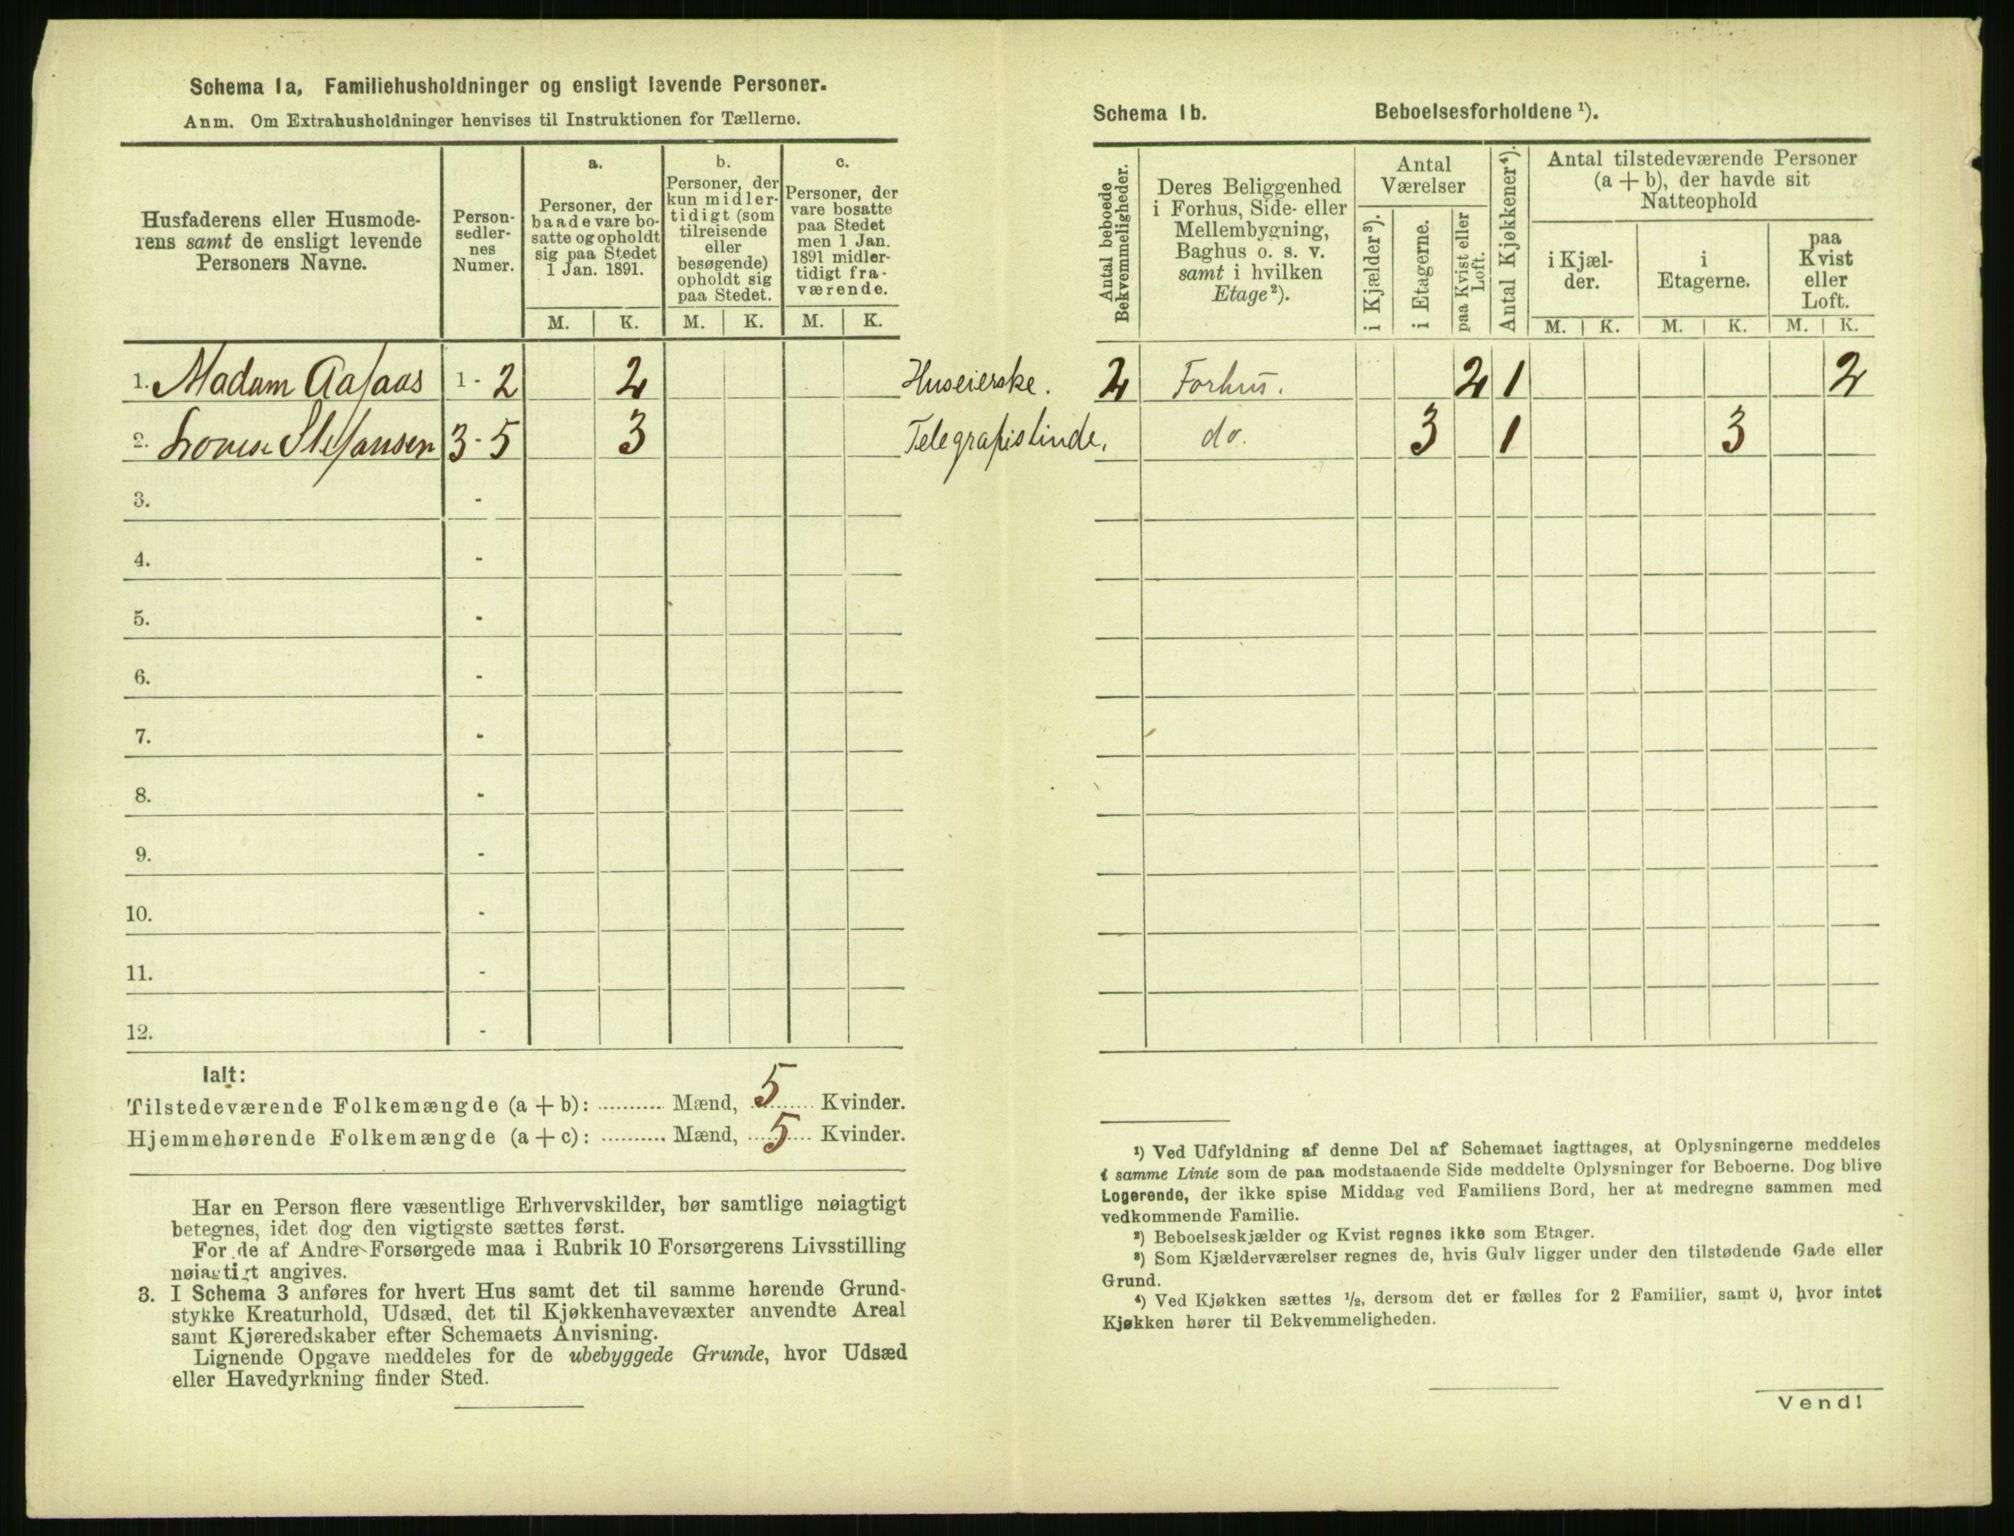 Schema 1a, Familiehusholdninger og ensligt levende Personer.
Anm. Om Extrahusholdninger henvises til Instruktionen for Tællerne.
Husfaderens eller Husmode-
rens samt de ensligt levende
Personers Navne.
Person-
sedler-
nes
Numer.
a.
Personer, der
baade vare bo-
satte og opholdt
sig paa Stedet
1 Jan. 1891.
b.
Personer, der
kun midler-
tidigt (som
tilreisende
eller
besøgende)
opholdt sig
paa Stedet.
c.
Personer, der
vare bosatte
paa Stedet
men 1 Jan.
1891 midler-
tidigt fra-
værende.
M. K. M. K. M. K.
1. Madam Aafaas 1 - 2 2 Huseierske.
2. Lovise Stefansen 3 - 5 3 Telegrafistinde.
3. -
4. -
5. -
6. -
7. -
8. -
9. -
10. -
11. -
12. -
Ialt:
Tilstedeværende Folkemængde (a + b): .......... Mænd, 5 Kvinder.
Hjemmehørende Folkemængde (a + c): .......... Mænd, 5 Kvinder.
Har en Person flere væsentlige Erhvervskilder, bør samtlige nøiagtigt
betegnes, idet dog den vigtigste sættes først.
For de af Andre Forsørgede maa i Rubrik 10 Forsørgerens Livsstilling
nøiagtigt angives.
3. I Schema 3 anføres for hvert Hus samt det til samme hørende Grund-
stykke Kreaturhold, Udsæd, det til Kjøkkenhavevæxter anvendte Areal
samt Kjøreredskaber efter Schemaets Anvisning.
Lignende Opgave meddeles for de ubebyggede Grunde, hvor Udsæd
eller Havedyrkning finder Sted.
Schema 1b. Beboelsesforholdene ¹).
Antal beboede
Bekvemmeligheder.
Deres Beliggenhed
i Forhus, Side- eller
Mellembygning,
Baghus o. s. v.
samt i hvilken
Etage²).
Antal
Værelser
i Kjælder³).
i Etagerne.
paa Kvist eller
Loft.
Antal Kjøkkener⁴).
Antal tilstedeværende Personer
(a + b), der havde sit
Natteophold
i Kjæl-
der.
i
Etagerne.
paa
Kvist
eller
Loft.
M. K. M. K. M. K.
2 Forhus. 2 1 2
do. 3 1 3
¹) Ved Udfyldning af denne Del af Schemaet iagttages, at Oplysningerne meddeles
i samme Linie som de paa modstaaende Side meddelte Oplysninger for Beboerne. Dog blive
Logerende, der ikke spise Middag ved Familiens Bord, her at medregne sammen med
vedkommende Familie.
²) Beboelseskjælder og Kvist regnes ikke som Etager.
³) Som Kjælderværelser regnes de, hvis Gulv ligger under den tilstødende Gade eller
Grund.
⁴) Ved Kjøkken sættes ½, dersom det er fælles for 2 Familier, samt 0, hvor intet
Kjøkken hører til Bekvemmeligheden.
Vend!